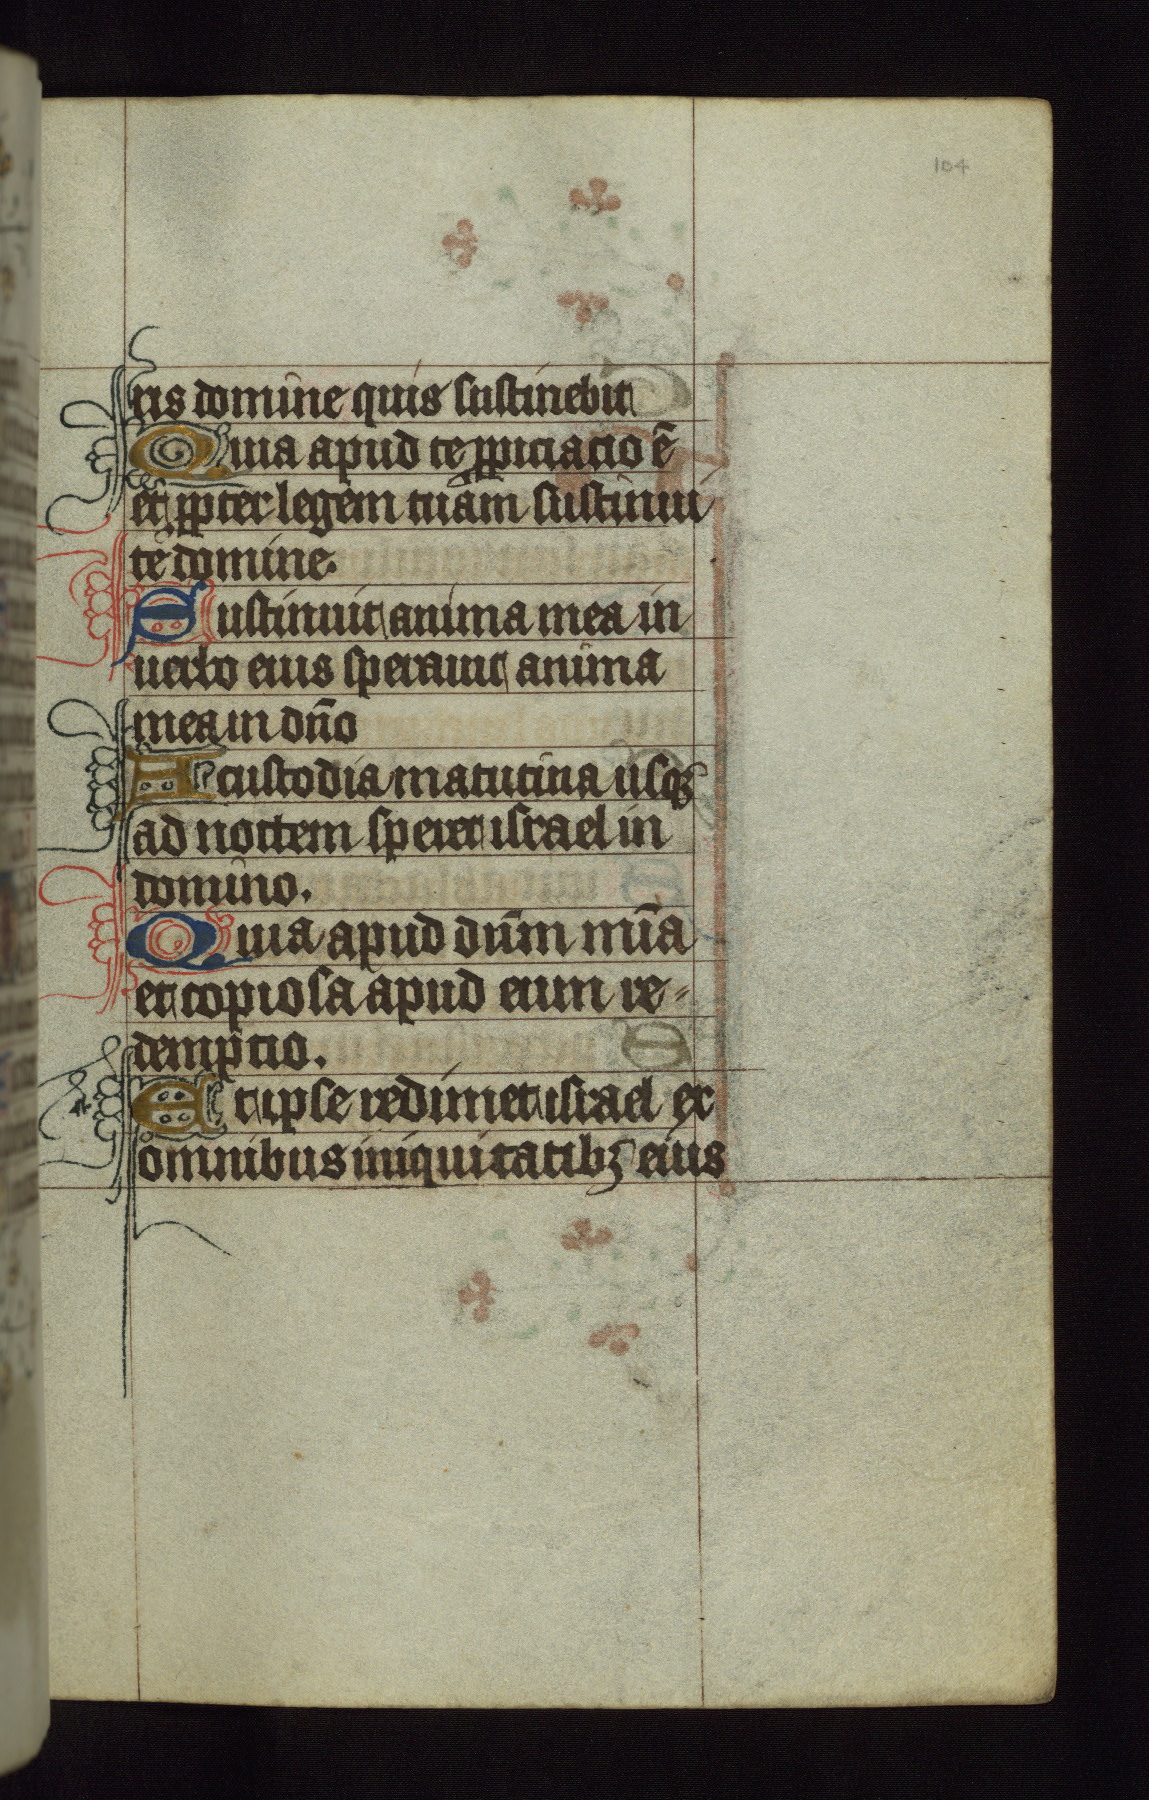 104
ris domine quis sustinebit
Quia apud te ꝓpiciacio ē
et ꝓpter legem tuam sustinui
te domine.
Sustinuit anima mea in
uerbo eius sperauit anima
mea in dn̄o
A custodia matutina usqꝫ
ad noctem speret israel in
domino.
Quia apud dn̄m mīa
et copiosa apud eum re⸗
demptio.
Et ipse redimet israel ex
omnibus iniquitatibꝫ eius